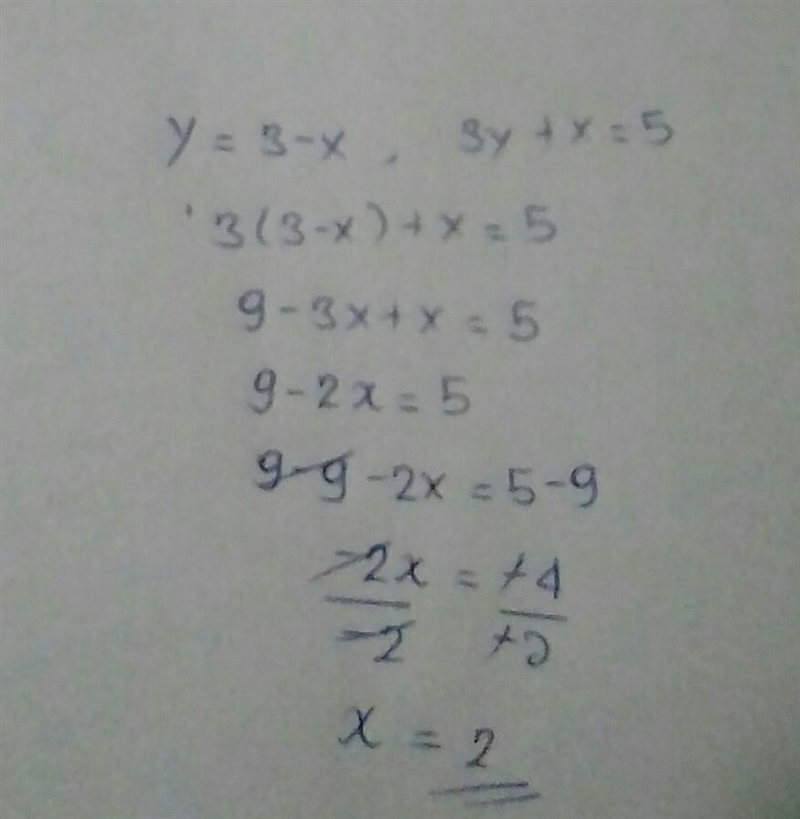 y = 3-x , 3y + x = 5
3(3-x) + x = 5
9 - 3x + x = 5
9 - 2x = 5
9 - 9 - 2x = 5 - 9
-2x/-2 = -4/-2
x = 2